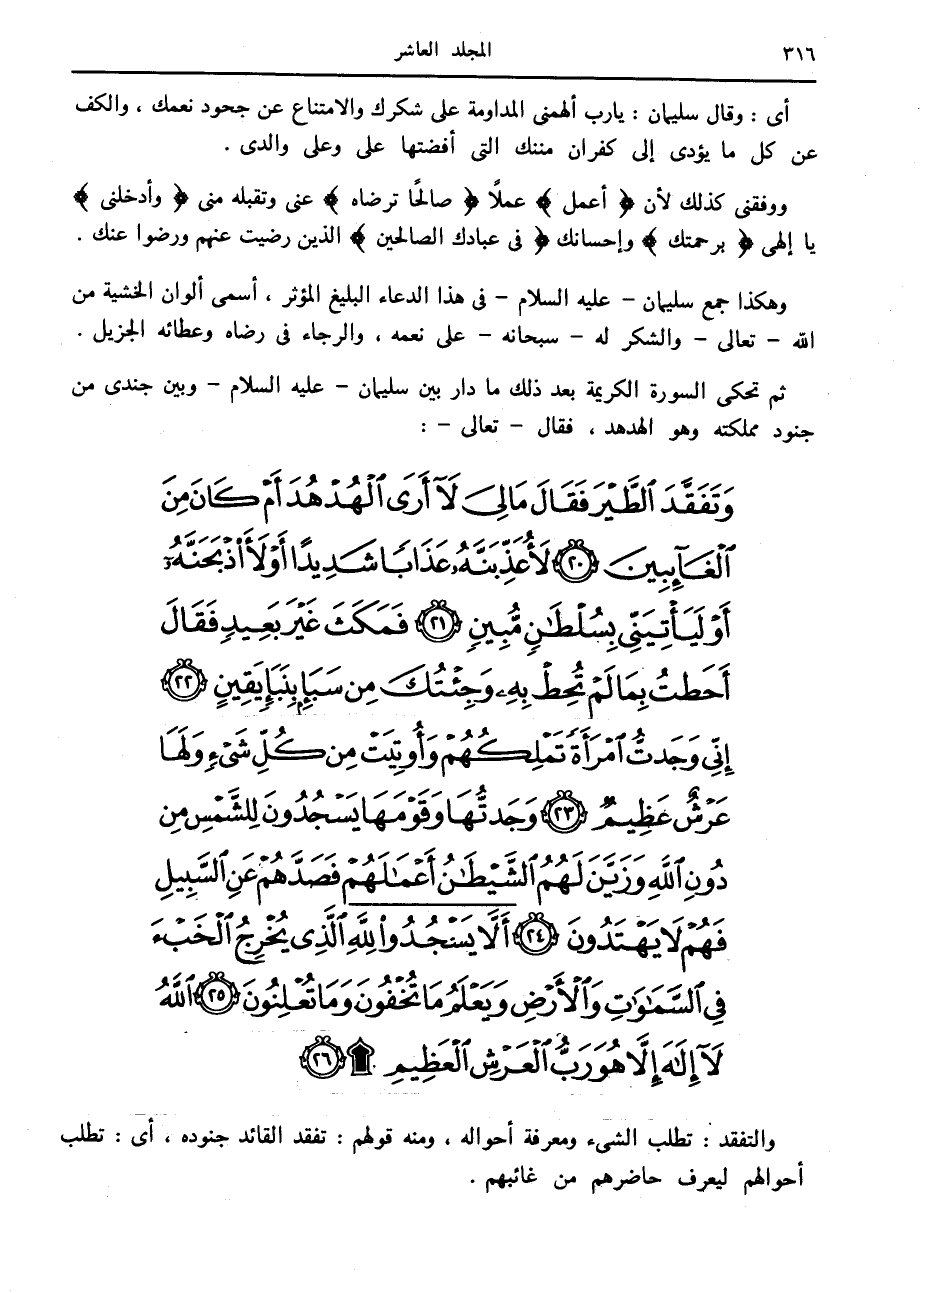 ٣١٦
المجلد العاشر
أى : وقال سليمان : يارب ألهمنى المداومة على شكرك والامتناع عن جحود نعمك ، والكف
عن كل ما يؤدى إلى كفران مننك التى أفضتها على وعلى والدى .
ووفقنى كذلك لأن ﴿ أعمل ﴾ عملًا ﴿ صالحًا ترضاه ﴾ عنى وتقبله منى ﴿ وأدخلنى ﴾
يا إلهى ﴿ برحمتك ﴾ وإحسانك ﴿ فى عبادك الصالحين ﴾ الذين رضيت عنهم ورضوا عنك .
وهكذا جمع سليمان – عليه السلام – فى هذا الدعاء البليغ المؤثر ، أسمى ألوان الخشية من
الله – تعالى – والشكر له – سبحانه – على نعمه ، والرجاء فى رضاه وعطائه الجزيل .
ثم تحكى السورة الكريمة بعد ذلك ما دار بين سليمان – عليه السلام – وبين جندى من
جنود مملكته وهو الهدهد ، فقال – تعالى – :
وَتَفَقَّدَ ٱلطَّيْرَ فَقَالَ مَالِىَ لَآ أَرَى ٱلْهُدْهُدَ أَمْ كَانَ مِنَ
ٱلْغَآئِبِينَ ﴿٢٠﴾ لَأُعَذِّبَنَّهُۥ عَذَابًا شَدِيدًا أَوْ لَأَاْذْبَحَنَّهُۥٓ
أَوْ لَيَأْتِيَنِّى بِسُلْطَٰنٍ مُّبِينٍ ﴿٢١﴾ فَمَكَثَ غَيْرَ بَعِيدٍ فَقَالَ
أَحَطتُ بِمَا لَمْ تُحِطْ بِهِۦ وَجِئْتُكَ مِن سَبَإٍ بِنَبَإٍ يَقِينٍ ﴿٢٢﴾
إِنِّى وَجَدتُّ ٱمْرَأَةً تَمْلِكُهُمْ وَأُوتِيَتْ مِن كُلِّ شَىْءٍ وَلَهَا
عَرْشٌ عَظِيمٌ ﴿٢٣﴾ وَجَدتُّهَا وَقَوْمَهَا يَسْجُدُونَ لِلشَّمْسِ مِن
دُونِ ٱللَّهِ وَزَيَّنَ لَهُمُ ٱلشَّيْطَٰنُ أَعْمَٰلَهُمْ فَصَدَّهُمْ عَنِ ٱلسَّبِيلِ
فَهُمْ لَا يَهْتَدُونَ ﴿٢٤﴾ أَلَّا يَسْجُدُوا۟ لِلَّهِ ٱلَّذِى يُخْرِجُ ٱلْخَبْءَ
فِى ٱلسَّمَٰوَٰتِ وَٱلْأَرْضِ وَيَعْلَمُ مَا تُخْفُونَ وَمَا تُعْلِنُونَ ﴿٢٥﴾ ٱللَّهُ
لَآ إِلَٰهَ إِلَّا هُوَ رَبُّ ٱلْعَرْشِ ٱلْعَظِيمِ ۩ ﴿٢٦﴾
والتفقد : تطلب الشىء ومعرفة أحواله ، ومنه قولهم : تفقد القائد جنوده ، أى : تطلب
أحوالهم ليعرف حاضرهم من غائبهم .